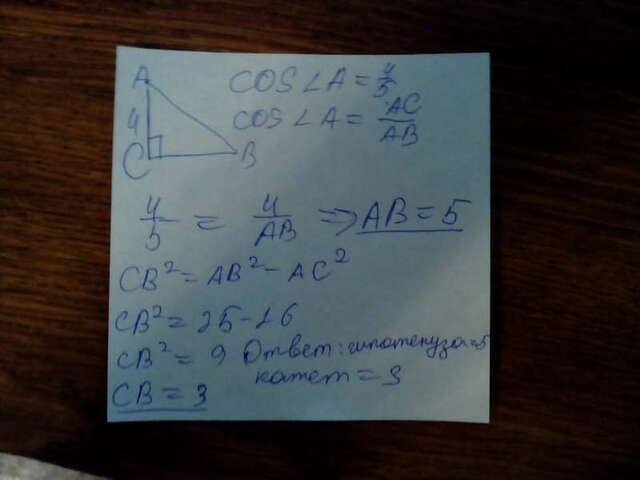 A
4
C
B
COS∠A = 4/5
COS∠A = AC/AB
4/5 = 4/AB => AB = 5
CB² = AB² - AC²
CB² = 25 - 16
CB² = 9
CB = 3
Ответ: гипотенуза = 5
катет = 3